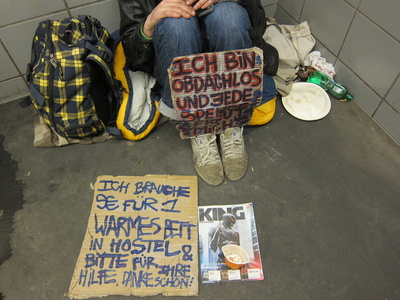 ICH BIN
OBDACHLOS
UND JEDE
ICH BRAUCHE
9€ FÜR 1
WARMES BETT
IN HOSTEL &
BITTE FÜR IHRE
HILFE. DANKESCHÖN!
KING